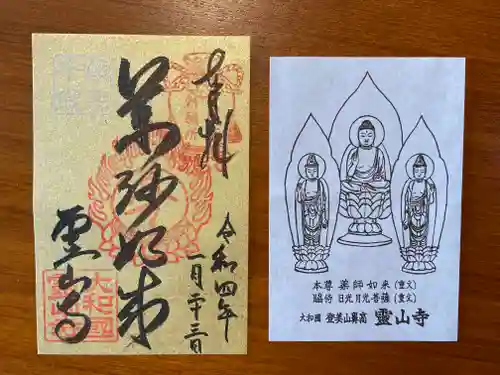 奉拝
薬師如来
霊山寺
令和四年
一月二十三日
大和國
本尊 薬師如来 (重文)
脇侍 日光月光菩薩 (重文)
大和國 登美山鼻高 靈山寺